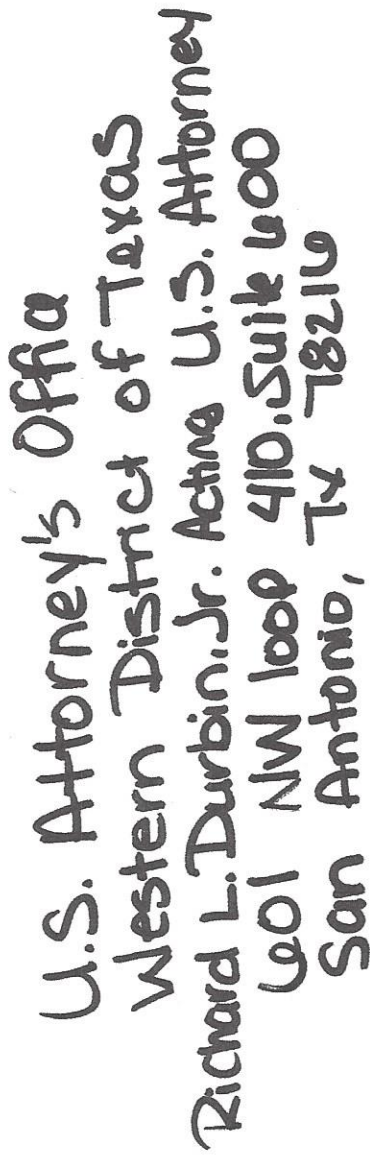 U.S. Attorney's Office
Western District of Texas
Richard L. Durbin, Jr. Acting U.S. Attorney
601 NW loop 410, Suite 600
San Antonio, TX 78216